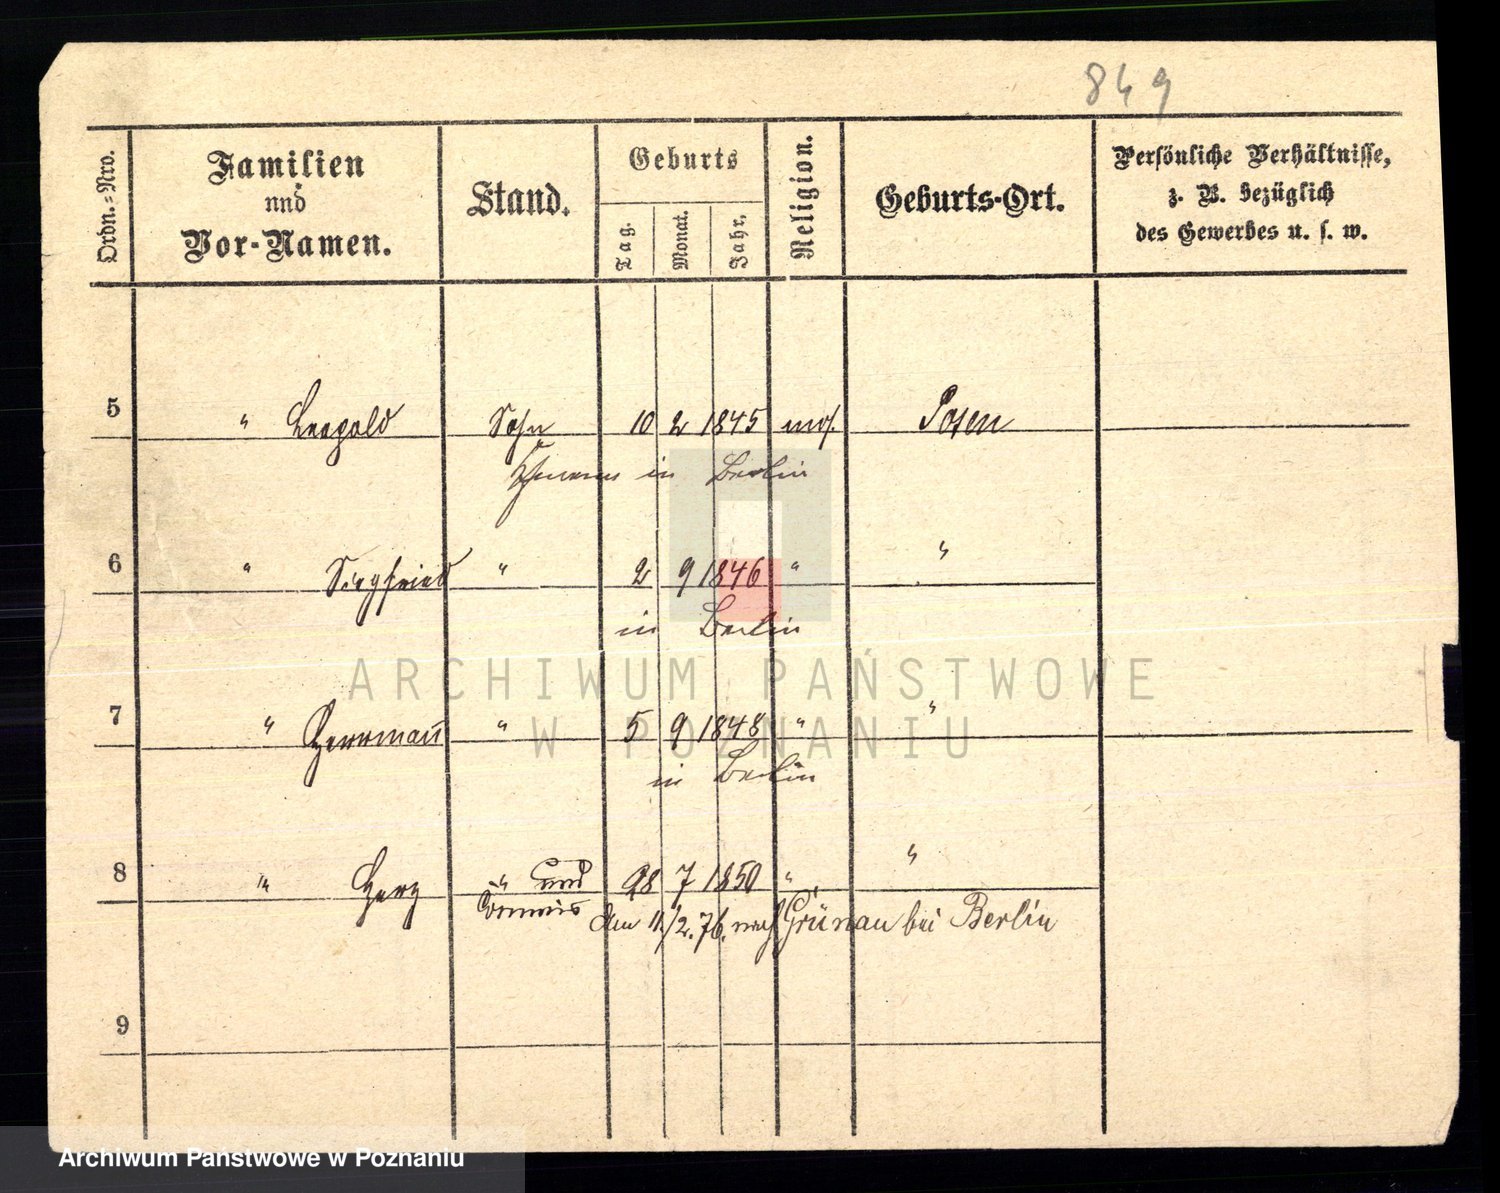 849
Ordn.=Nro.
Familien
und
Vor-Namen.
Stand.
Geburts
Tag.
Monat.
Jahr.
Religion.
Geburts-Ort.
Persönliche Verhältnisse,
z. B. bezüglich
des Gewerbes u. s. w.
5 " Leopold Sohn 10 2 1845 mos. Posen
in Berlin
6 " Siegfried " 2 9 1846 " "
in Berlin
7 " Herrmann " 5 9 1848 " "
in Berlin
8 " Herz " und 28 7 1850 " "
Commis
Am 11/2. 76. nach Grünau bei Berlin
9
ARCHIWUM PAŃSTWOWE
W POZNANIU
Archiwum Państwowe w Poznaniu